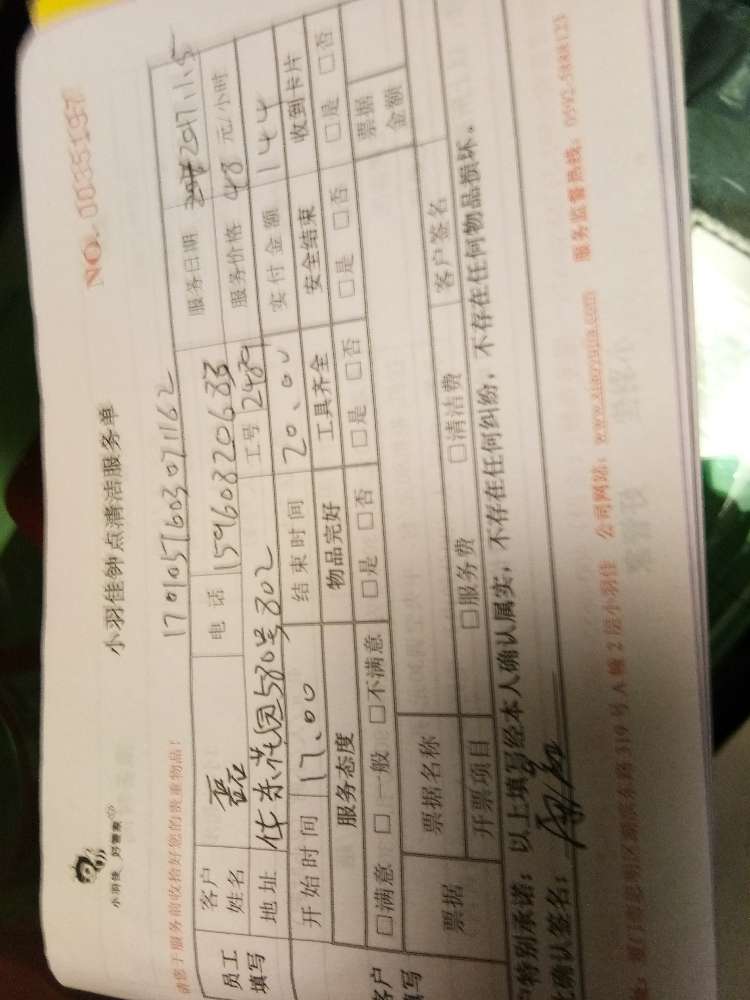 小羽佳 好管家
小羽佳钟点清洁服务单
NO. 0035197
请您于服务前收拾好您的贵重物品!
1701051603071162
员工填写
客户姓名 磊 电话 15960820683 服务日期 2017.1.5
地址 华东花园580号302 工号 2489 服务价格 48 元/小时
开始时间 17.00 结束时间 20.00 实付金额 144
服务态度 物品完好 工具齐全 安全结束 收到卡片
□满意 □一般 □不满意 □是 □否 □是 □否 □是 □否 □是 □否
客户填写
票据 票据名称 票据金额
开票项目 □服务费 □清洁费 客户签名
特别承诺:以上填写经本人确认属实,不存在任何纠纷,不存在任何物品损坏。
确认签名:
厦门市思明区湖滨东路319号A幢2层小羽佳 公司网站:www.xiaoyujia.com 服务监督热线:0592-5888123